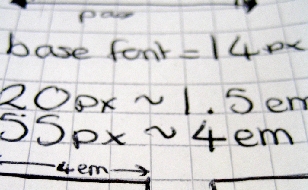 base font = 14px
20px ~ 1.5em
55px ~ 4em
4em